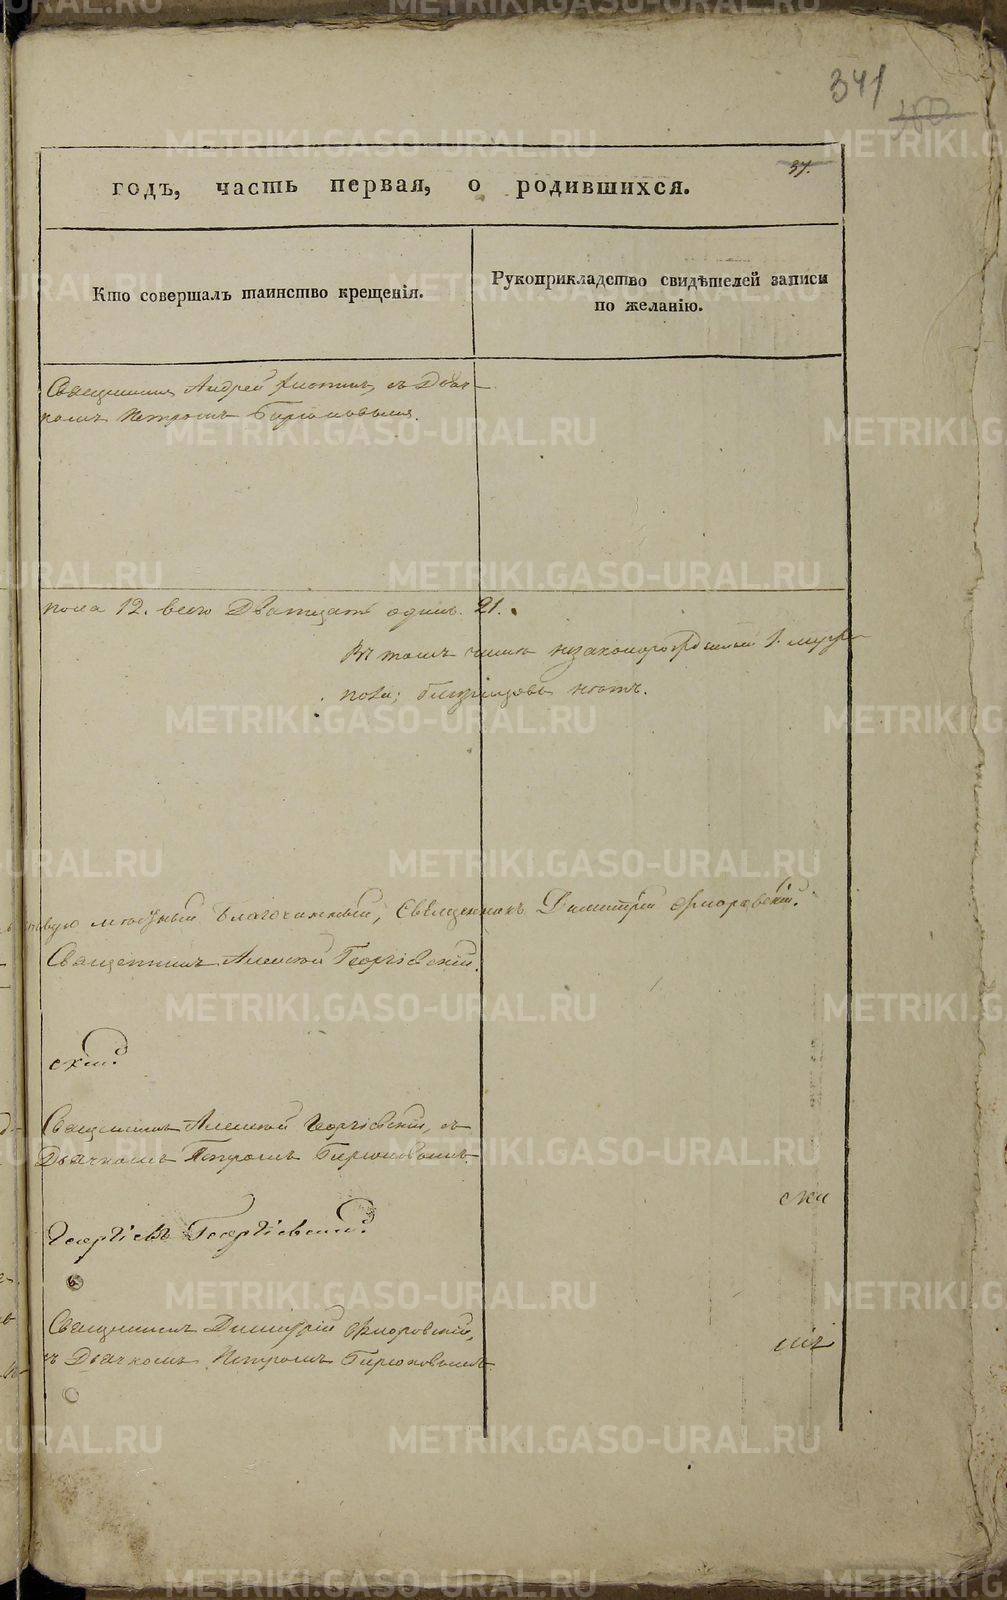 341
37.
годъ, часть первая, о родившихся.
Кто совершалъ таинство крещенія.
Рукоприкладство свидѣтелей записи по желанію.
Священникъ Андрей съ Дьяч-
комъ Петромъ Бирюковымъ.
пола 12. всего Двадцать одинъ. 21.
Въ томъ числѣ незаконорожденный 1. муж.
пола; близнецовъ нѣтъ.
Благочинный, Священникъ Димитрій Флоровскій.
Священникъ Алексѣй Георгіевскій.
скій
Священникъ Алексѣй Георгіевскій, съ
Дьячкомъ Петромъ Бирюковымъ.
Георгій Георгіевскій
Священникъ Димитрій Флоровскій,
съ Дьячкомъ Петромъ Бирюковымъ.
METRIKI.GASO-URAL.RU